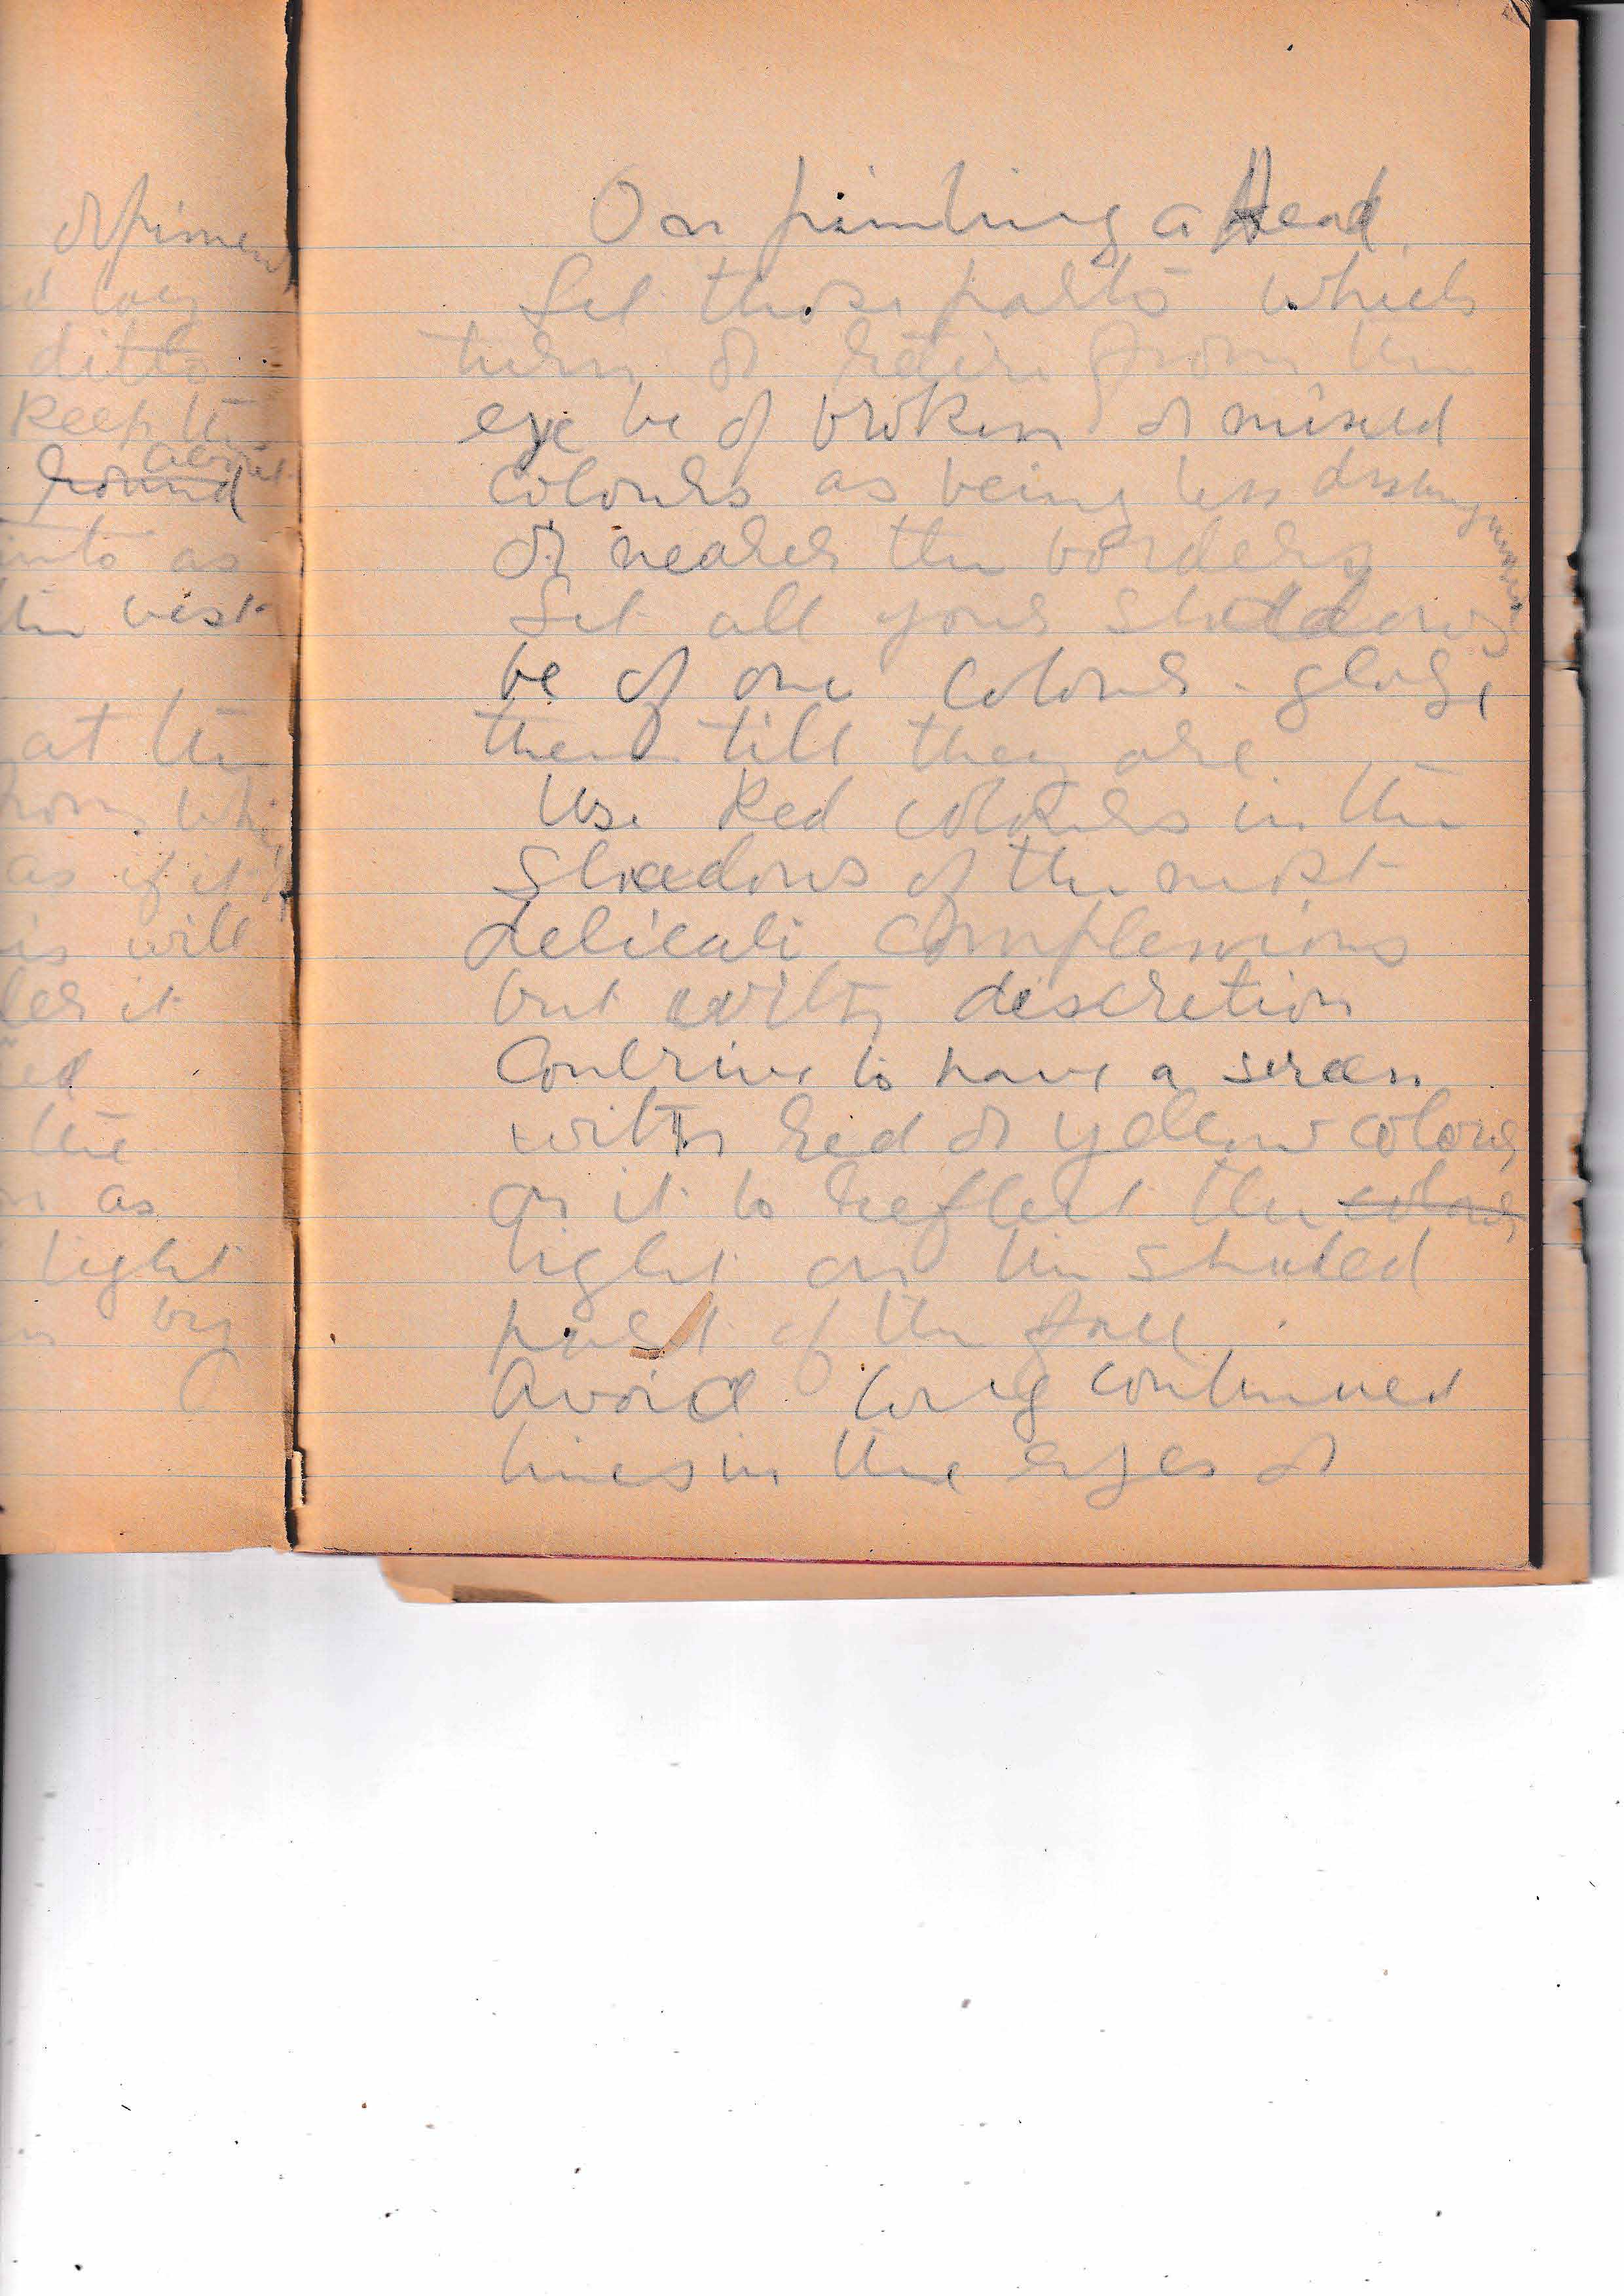 orpimen
d lay
ditto
keep the
about
round
ints as
the best
at the
from whi
as if it
is will
ler it
ed
the
n as
light
by
On painting a Head.
Let those parts which
turn or retire from the
eye be of broken or mixed
colours as being less distinguished
or nearer the borders
Let all your shadows
be of one colour - glaze
them till they are.
Use Red colours in the
Shadows of the most
delicate complexions
but with discretion
Contrive to have a screen
with red or yellow colour
on it to reflect the colour
light on the shaded
part of the face.
Avoid long continued
lines in the eyes or